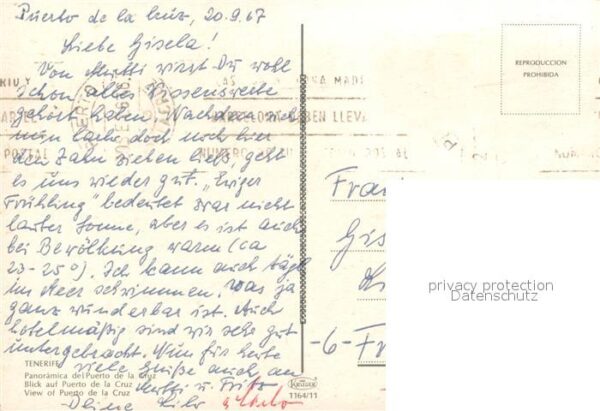 Puerto de la Cruz, 20.9.67
Liebe Gisela!
Von Mutti wirst Du wohl
schon alles Wissenswerte
gehört haben. Nachdem sich
mein doch noch hier
den Zahn ziehen ließ, geht
es uns wieder gut. "Ewiger
Frühling" bedeutet zwar nicht
lauter Sonne, aber es ist auch
bei Bewölkung warm (ca
23-25°). Ich kann auch tägl.
im Meer schwimmen, was ja
ganz wunderbar ist. Auch
hotelmäßig sind wir sehr gut
untergebracht. Nun für heute
viele Grüße auch an
Mutti u. Fritz
Deine
TENERIFE
Panorámica del Puerto de la Cruz
Blick auf Puerto de la Cruz
View of Puerto de la Cruz
KRÜGER
1164/11
REPRODUCCION
PROHIBIDA
POSTAL
NUMERO
LLEVA
Fra
Gis
-6-Fr
privacy protection
Datenschutz